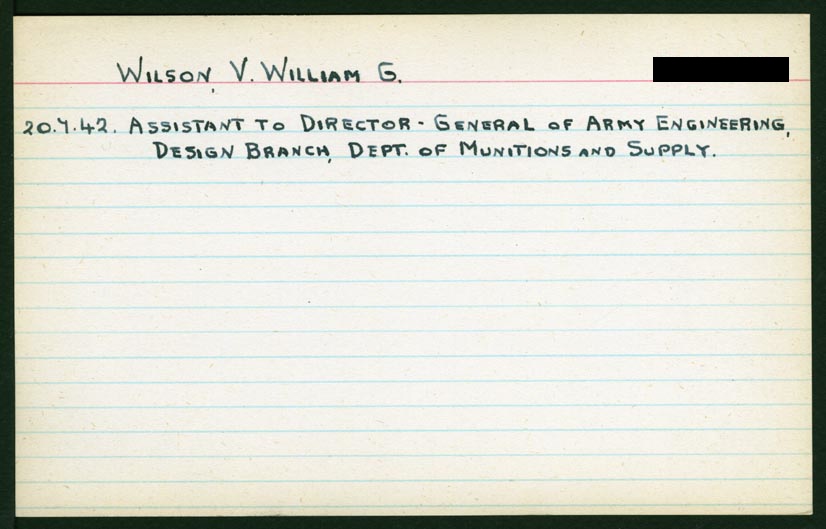 WILSON, V. WILLIAM G.
20.7.42. ASSISTANT TO DIRECTOR-GENERAL OF ARMY ENGINEERING,
DESIGN BRANCH, DEPT. OF MUNITIONS AND SUPPLY.